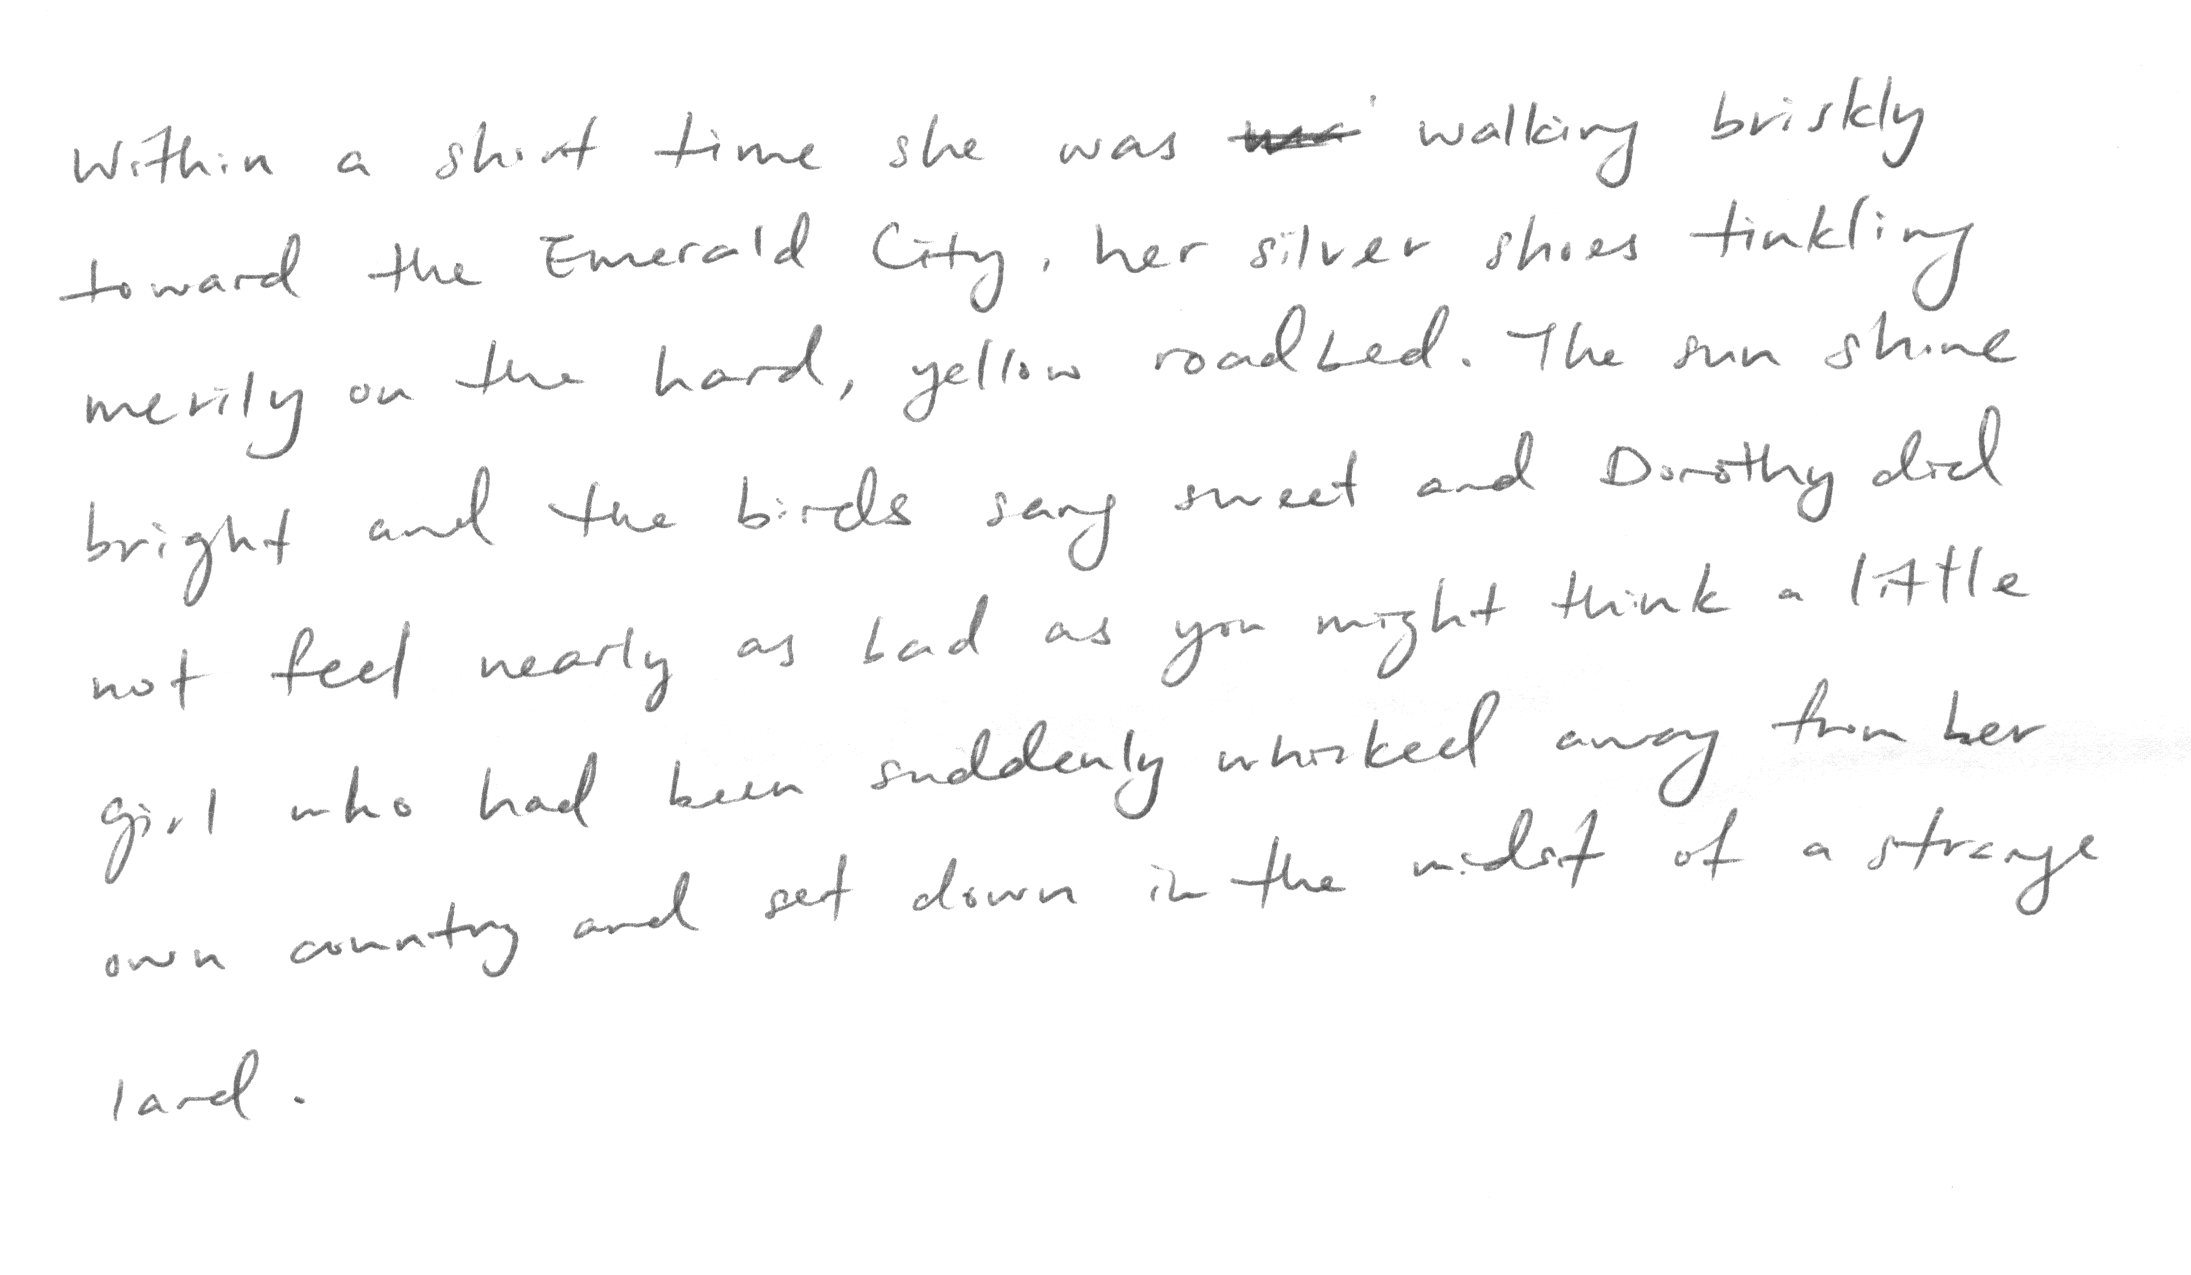 Within a short time she was walking briskly
toward the Emerald City, her silver shoes tinkling
merily on the hard, yellow roadbed. The sun shine
bright and the birds sang sweet and Dorothy did
not feel nearly as bad as you might think a little
girl who had been suddenly whisked away from her
own country and set down in the midst of a strange
land.